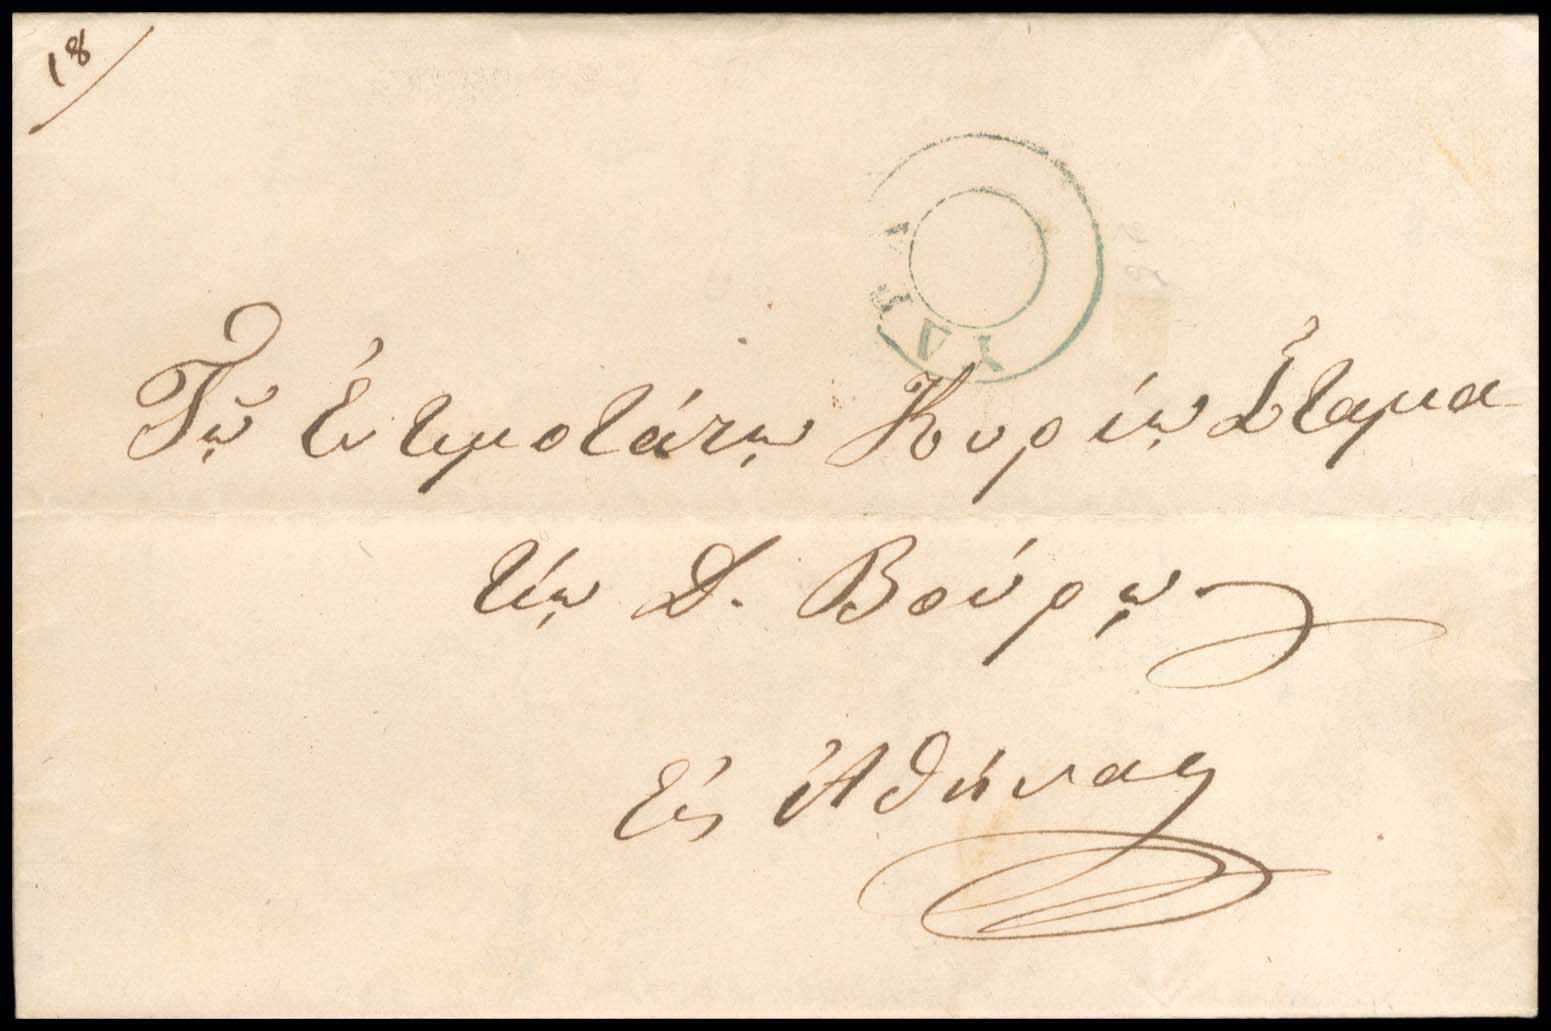 18
Τῷ Ἐντιμοτάτῳ Κυρίῳ Σταμα
τίῳ Δ. Βούρῳ
Εἰς Ἀθήνας